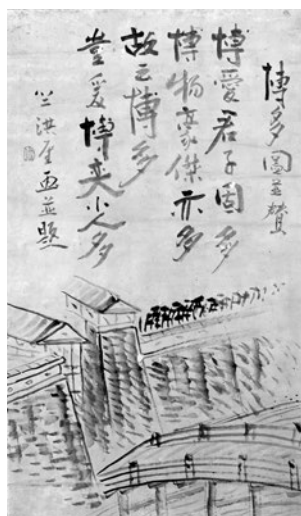 博多圖並賛
博愛君子固多
博物豪傑亦多
故云博多
豈博奕小人多
竺洪厓画並題